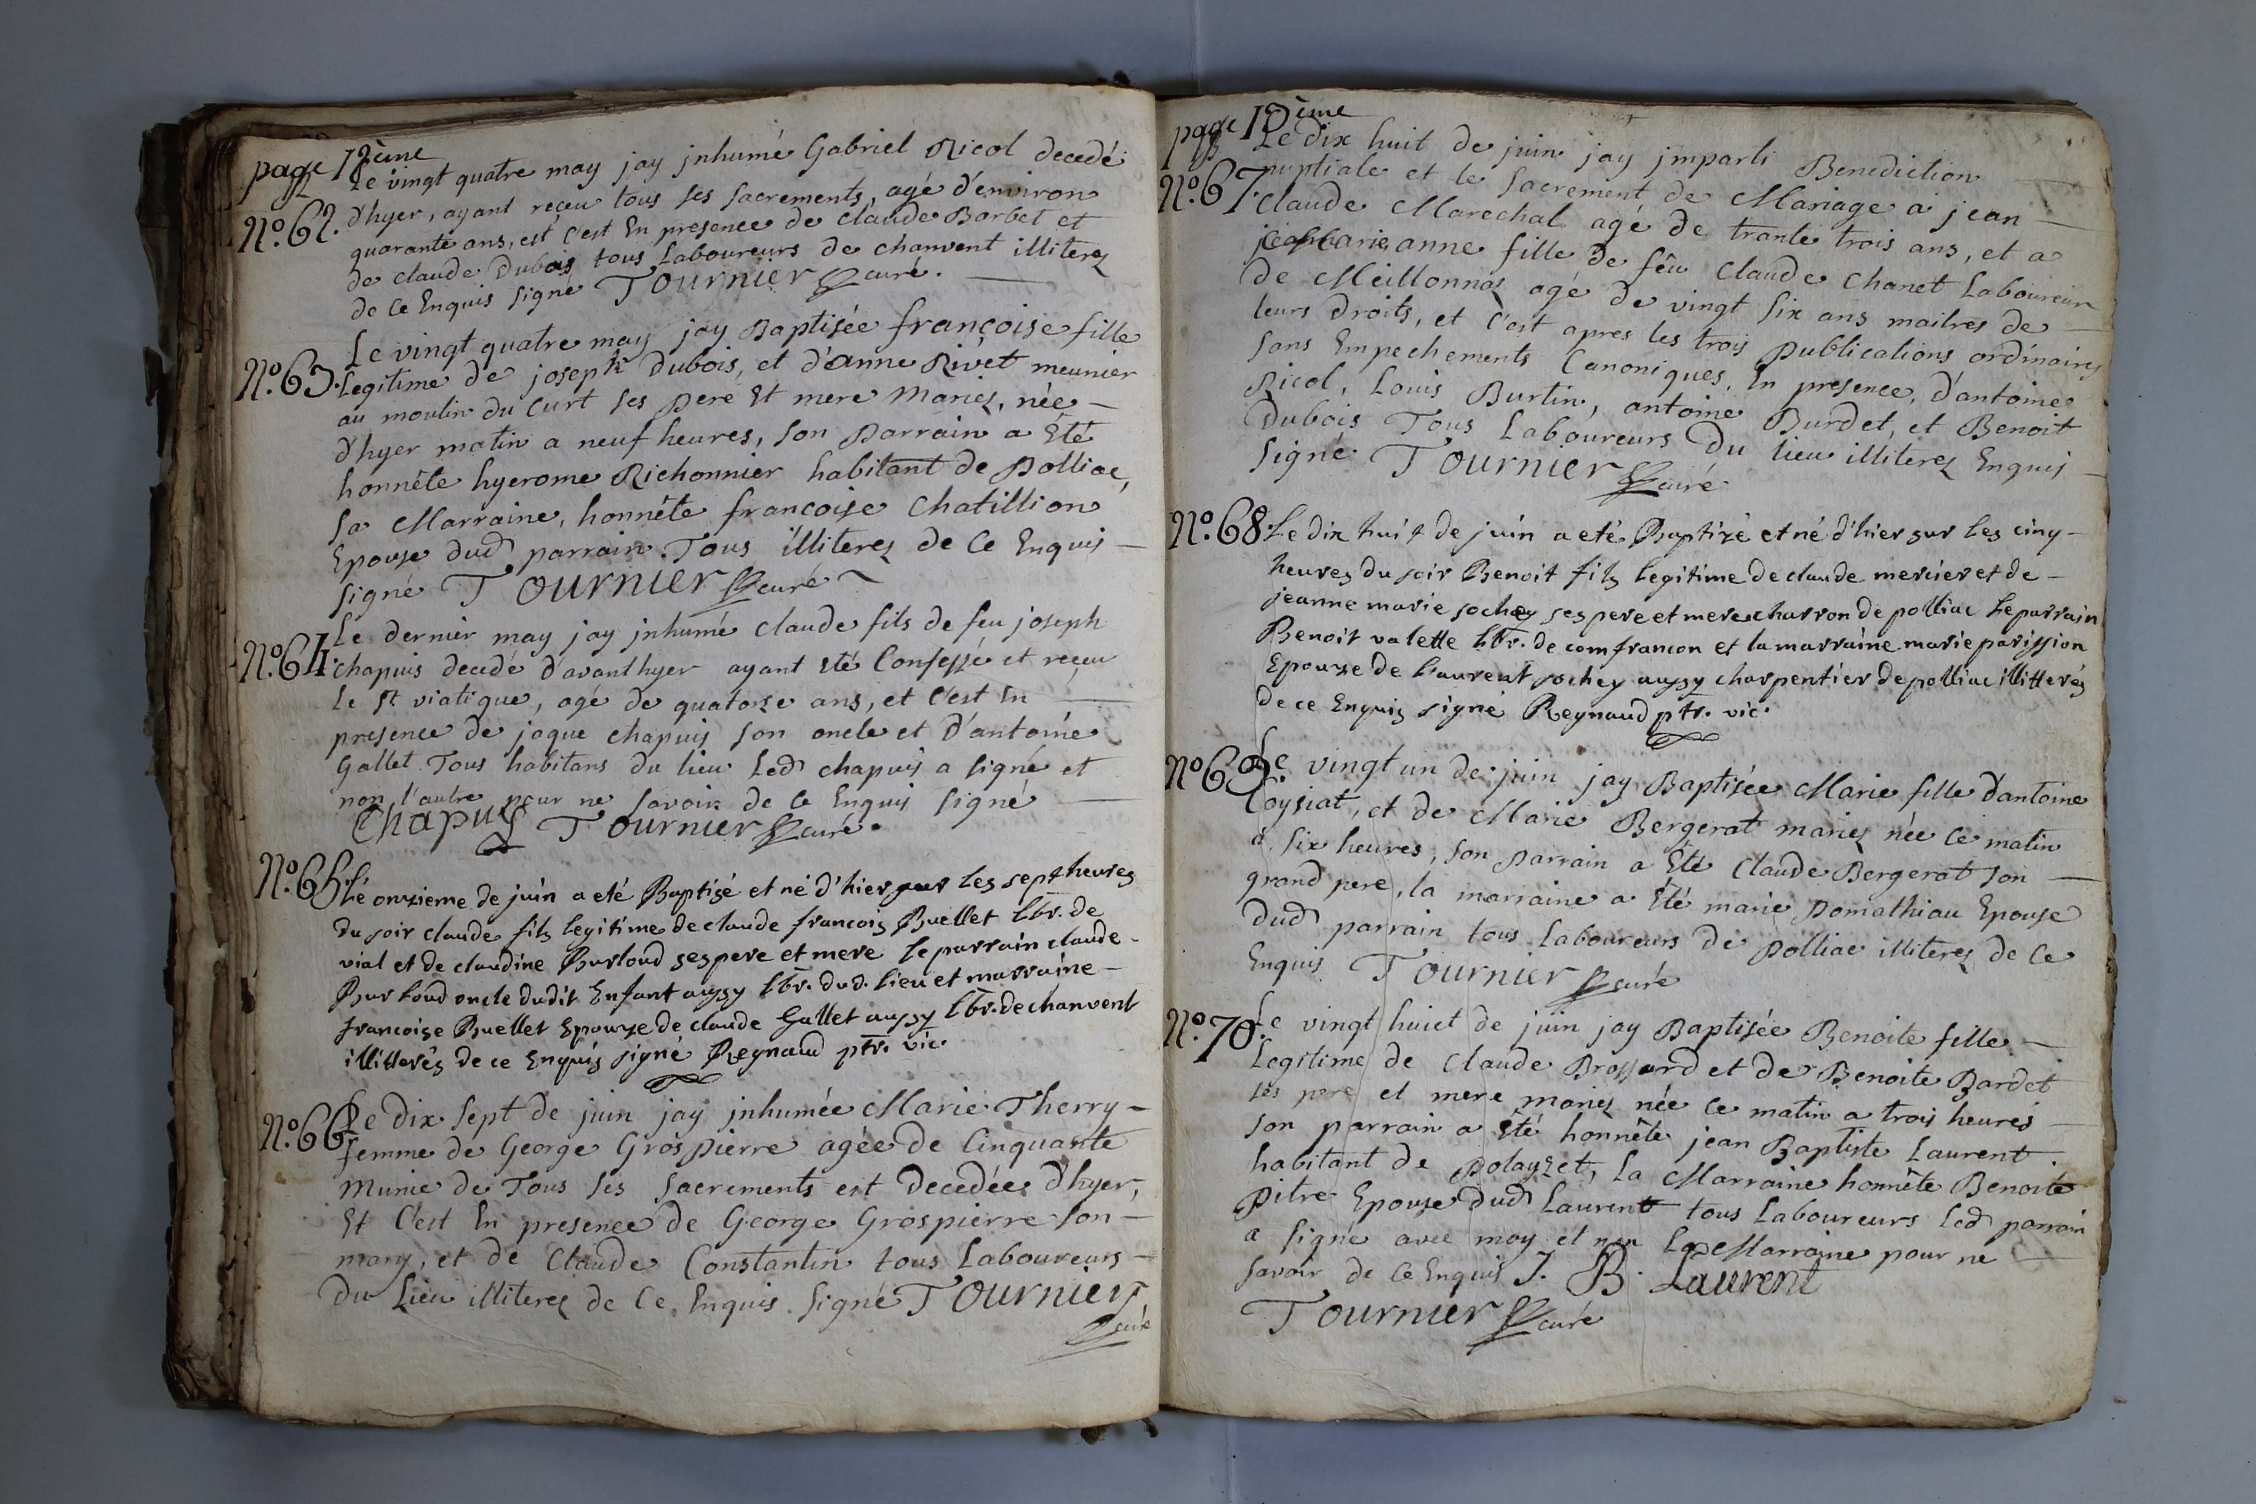 page 18ème
Le vingt quatre may jay jnhumé Gabriel Nicol decedé
N°. 62. d'hyer, ayant reçeu tous ses sacrements, agé d'environ
quarante ans, est c'est En presence de claude Barbet et
de claude Dubois tous Laboureurs de chanvent illiterez
de ce Enquis signé Tournier curé.
Le vingt quatre may jay Baptisée françoise fille
N°. 63. Legitime de joseph Dubois, et d'anne Rivet meunier
au moulin du Curt ses pere Et mere Mariez, née
d'hyer matin a neuf heures, son Parrain a Eté
honnête hyerome Richonnier habitant de Polliac,
sa Marraine, honnête francoise Chatillion
Epouse dud parrain. Tous illiterez de ce Enquis
signé Tournier curé
Le dernier may jay jnhumé claude fils de feu joseph
N°. 64. chapuis decedé d'avanthyer ayant Eté Confessé et reçeu
le st viatique, agé de quatorse ans, et c'est En
presence de jaque chapuis son oncle et d'antoine
Gallet Tous habitans du lieu Led chapuis a signé et
non l'autre pour ne savoir de ce Enquis signé
Chapuis Tournier curé.
N°. 65. Le onzieme de juin a eté Baptizé et né d'hier sur les sept heures
du soir claude fils legitime de claude francois Buellet lbr. de
vial et de claudine Burloud ses pere et mere le parrain claude
Burloud oncle dudit Enfant aussy lbr. dud. lieu et marraine
francoise Buellet Epouze de claude Gallet aussy lbr. de chanvent
illitterés de ce Enquis signé Reynaud ptr. vic.
Le dix sept de juin jay jnhumée Marie Therry
N°. 66. femme de George Grospierre agée de Cinquante
Munie de Tous ses sacrements est Decedée d'hyer,
Et C'est En presence de George Grospierre son
mary, et de Claude Constantin tous Laboureurs
Du Lieu illiterez de Ce Enquis signé Tournier
curé
page 19ème
Le dix huit de juin jay jmparti Benediction
N°. 67. nuptiale et le sacrement de Mariage a jean
Claude Marechal agé de trante trois ans, et a
anne fille de fêu Claude Chanet Laboureur
de Meillonnas agé de vingt six ans maitres de
leurs droits, et c'est apres les trois Publications ordinaires
sans Empechements Canoniques, En presence, d'antoine
Nicol, Louis Burtin, antoine Burdet, et Benoit
Dubois Tous Laboureurs Du lieu illiterez Enquis
signé Tournier curé
N°. 68. Le dix huit de juin a eté Baptizé et né d'hier sur les cinq
heures du soir Benoit fils legitime de claude mercier et de
jeanne marie sochey ses pere et mere charron de polliac le parrain
Benoit valette lbr. de comfrancon et la marraine marie parission
Epouze de laurent sochey aussy charpentier de polliac illitterés
de ce Enquis signé Reynaud ptr. vic.
N°. 69. Le vingt un de juin jay Baptisée Marie fille d'antoine
Coysiat, et de Marie Bergerat mariez née ce matin
a six heures, son parrain a Eté Claude Bergerat son
grand pere, la marraine a Eté marie Pomathiau Epouse
dud parrain tous Laboureurs de Polliac illiterez de Ce
Enquis Tournier curé
N°. 70. Le vingt huict de juin jay Baptisée Benoite fille
Legitime de Claude Brossard et de Benoite Bardet
ses pere et mere mariez née ce matin a trois heures
son parrain a Eté honnête jean Baptiste Laurent
habitant de Polayzet, La Marraine honnête Benoite
Pitre Epouse dud Laurent tous Laboureurs Led parrain
a signé avec moy et non La Marraine pour ne
savoir de Ce Enquis J. B. Laurent
Tournier curé